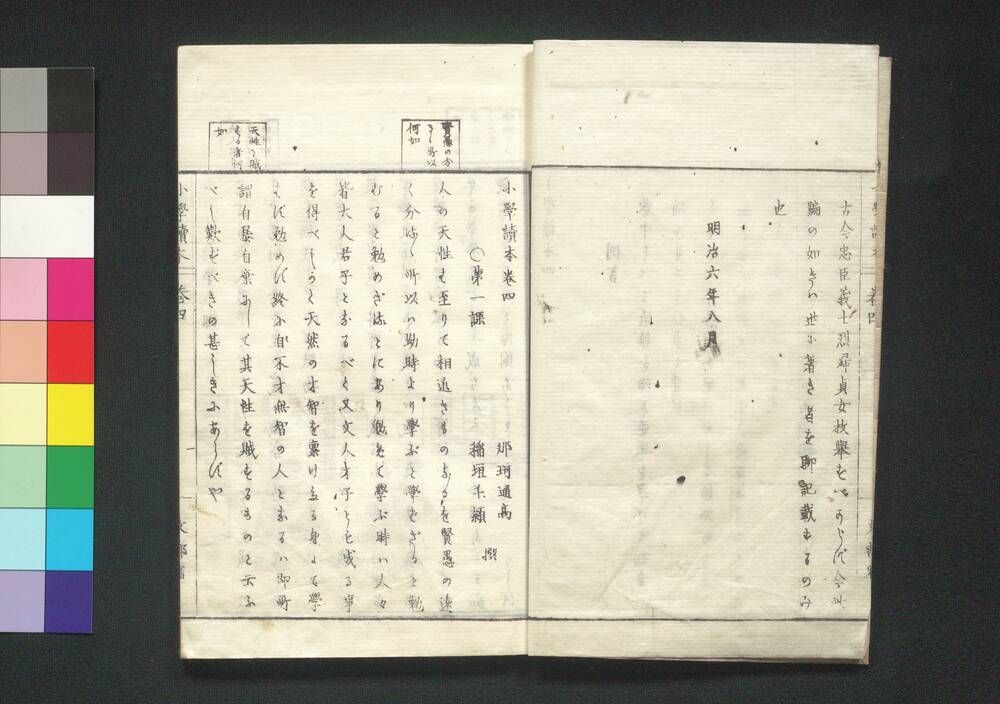 古今忠臣義士烈婦貞女枚擧をべからず今此
編の如きハ世に著き者を聊記載するのみ
也
明治六年八月
小學讀本卷四
那珂通高
稲垣千穎
撰
○第一課
人の天性も至りて相近きものなるを賢愚の遠
く分るゝ所以ハ幼時より學ぶと學ばざると勉
むると勉めざるとにあり勉めて學ぶ時ハ人々
皆大人君子となるべく又文人才子とも成る事
を得べしもらく天然の才智を禀け得る身も學
ばず勉めず終に自不才無智の人となるハ即所
謂自暴自棄にして其天性を賊するものと云ふ
べし歎ずべきの甚しきにあらずや
賢愚の分
るゝ所以
何如
天性を賊
する者何
如
小學讀本
卷四
一
文部省